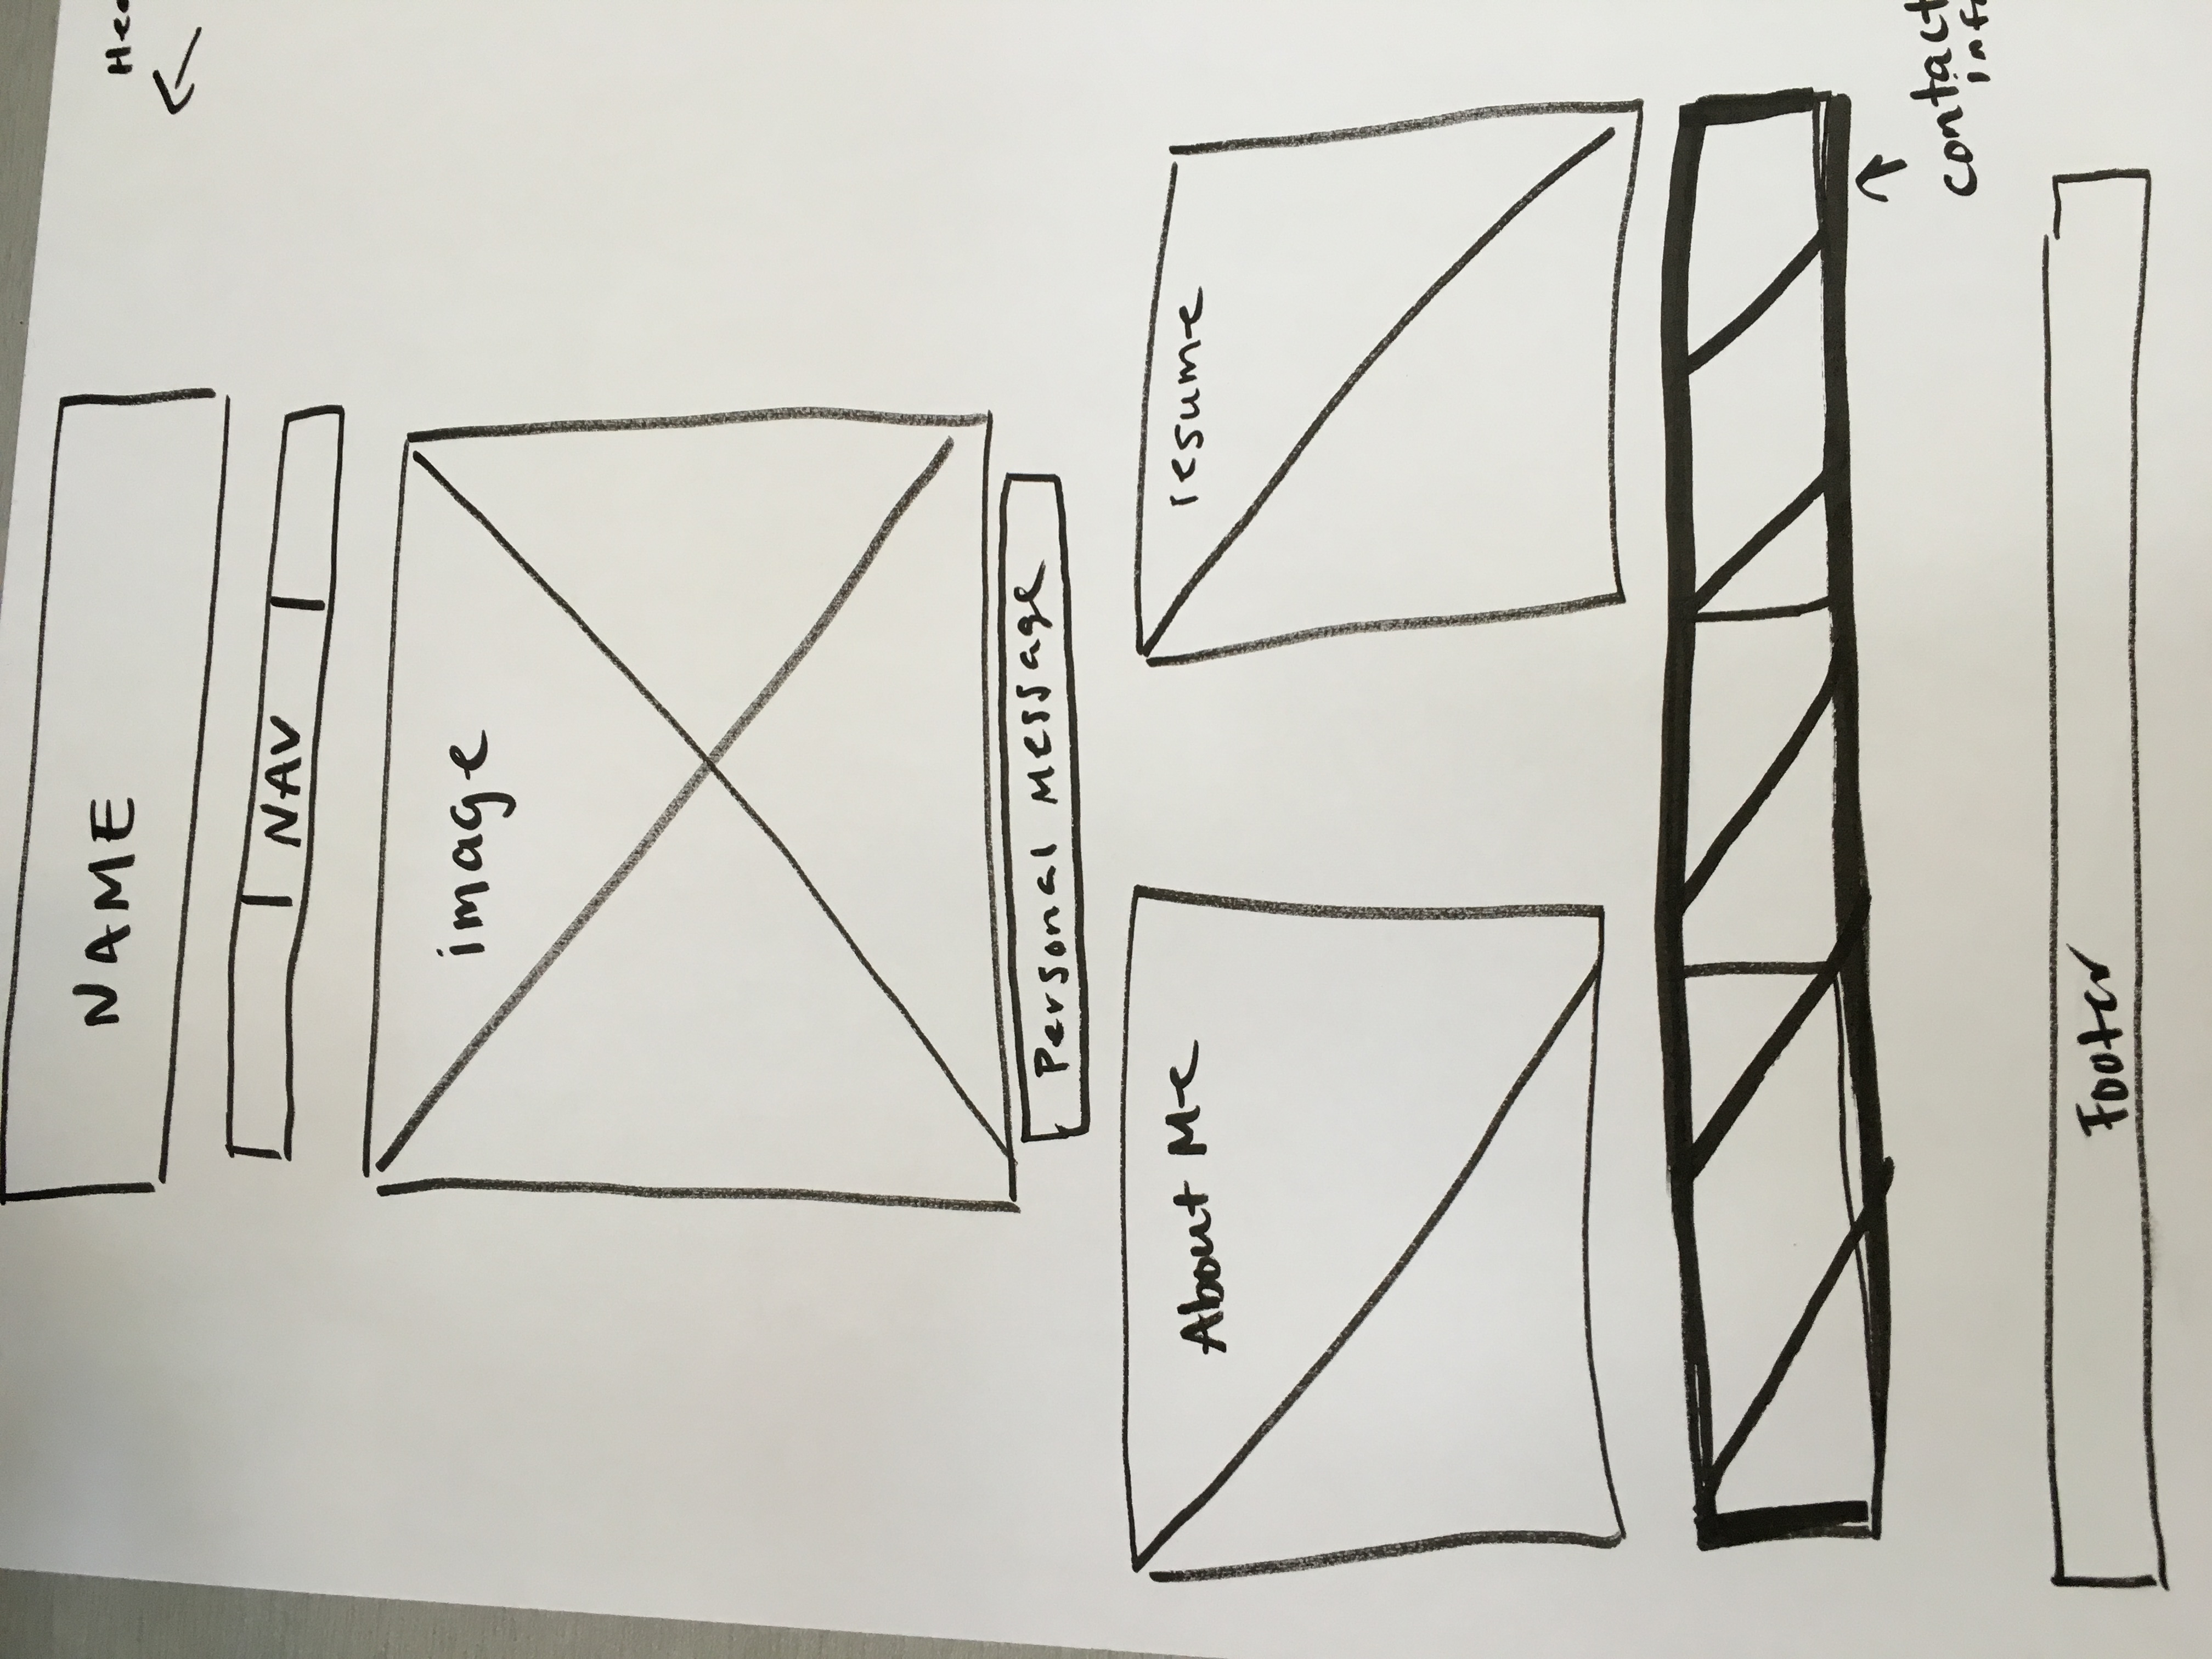 NAME
NAV
image
Personal Message
About Me
resume
contact
Footer